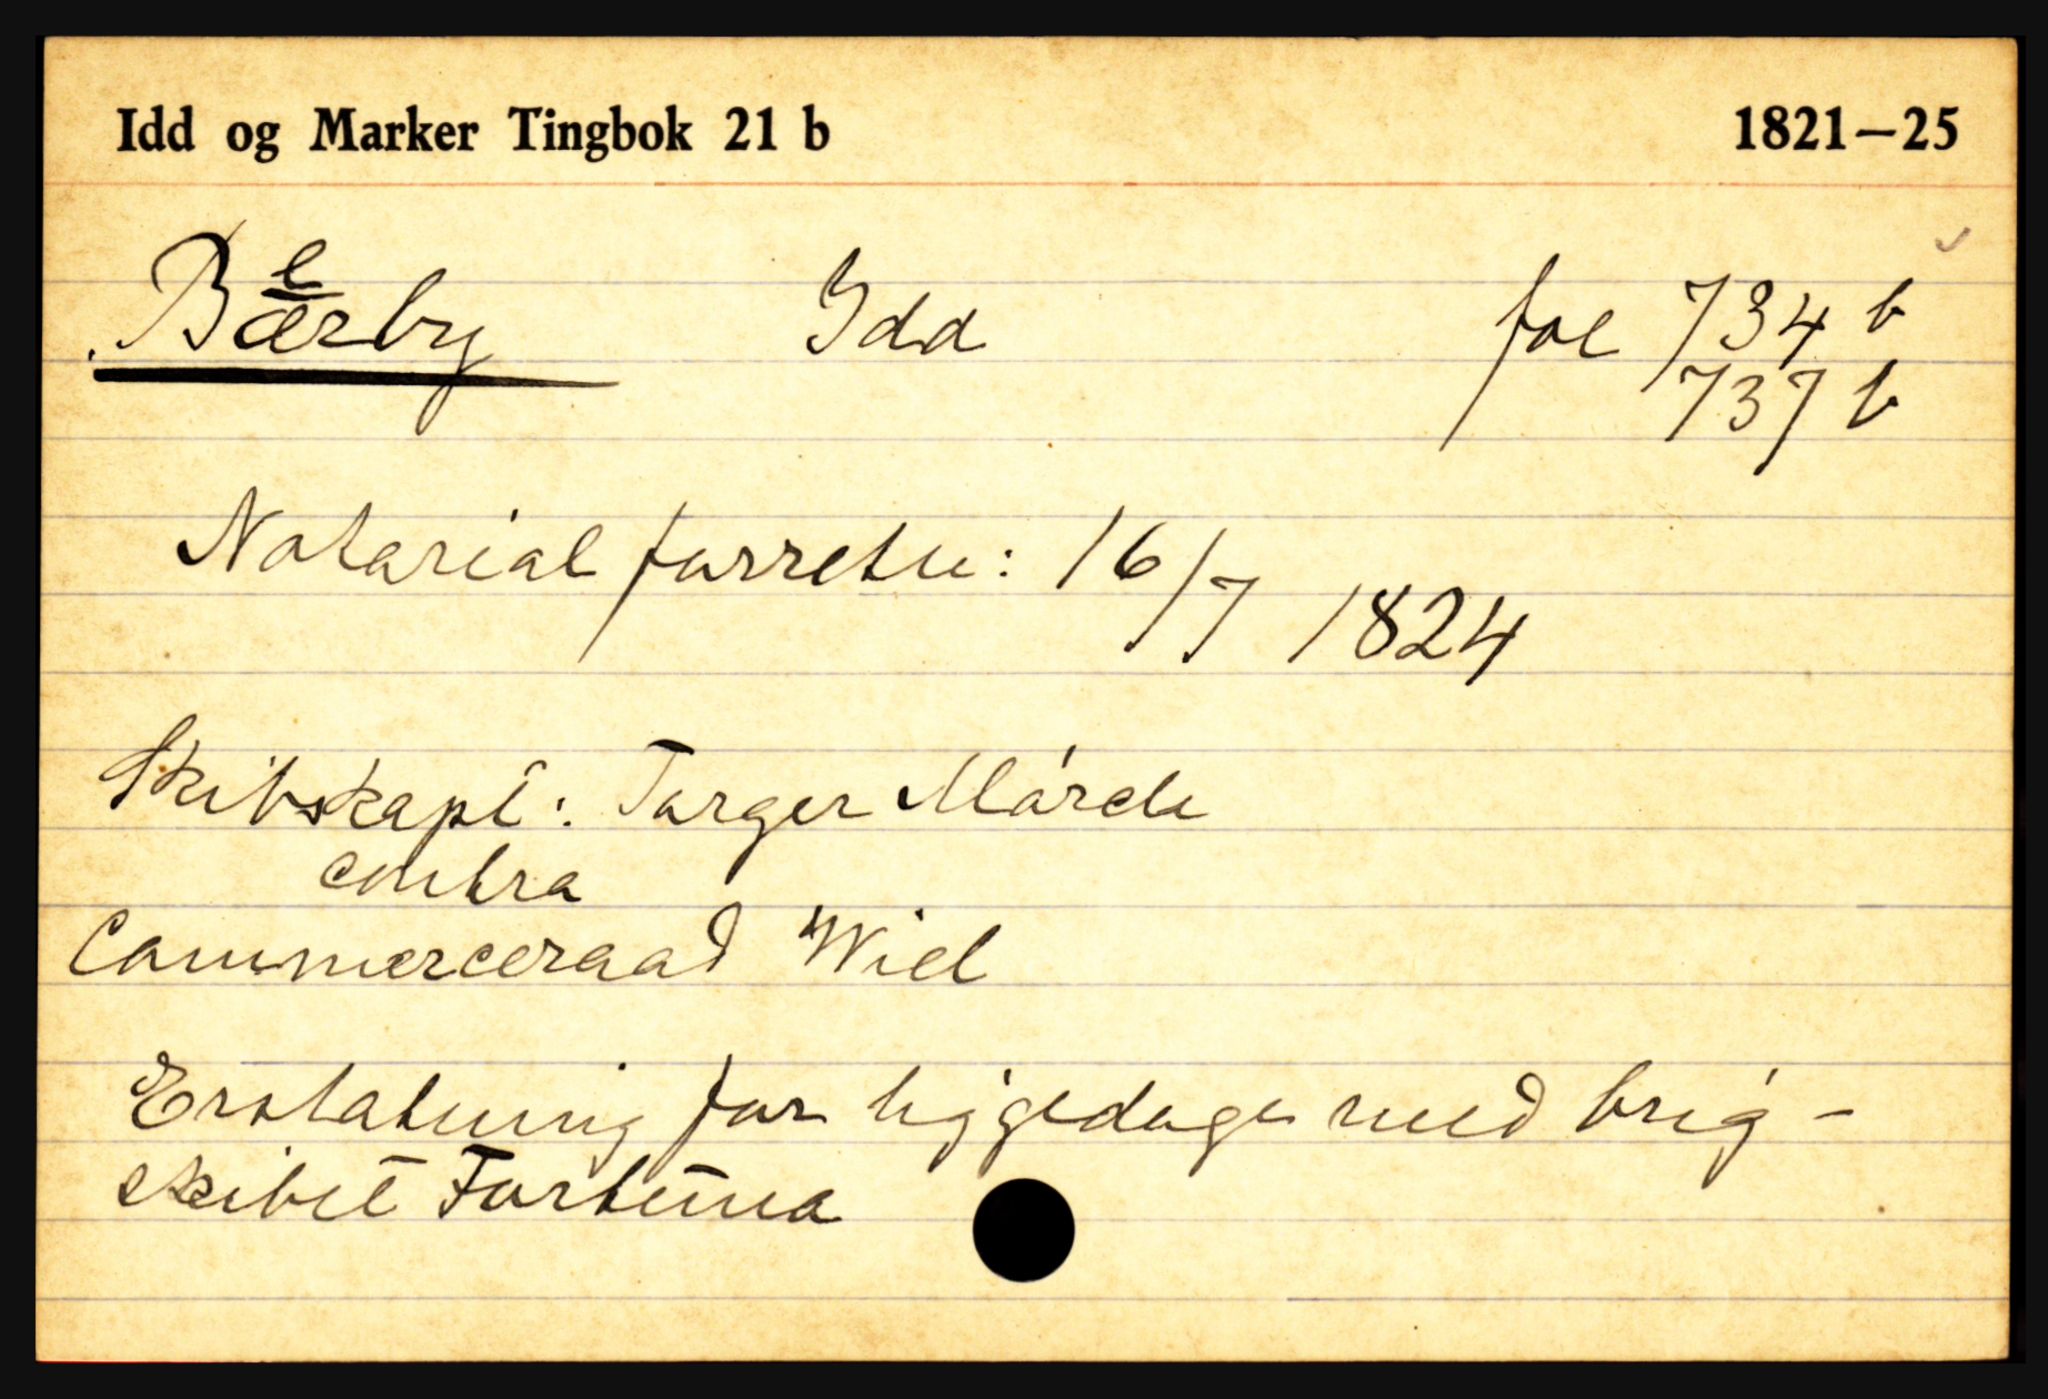 Idd og Marker Tingbok 21 b 1821—25
e
Bærby Idd fol 734 b
737 b
Notarial forretn: 16/7 1824
Skibskapt: Torger Mórch
contra
Commerceraad Wiel
Erstatning for liggedage med brig-
skibet Fortuna